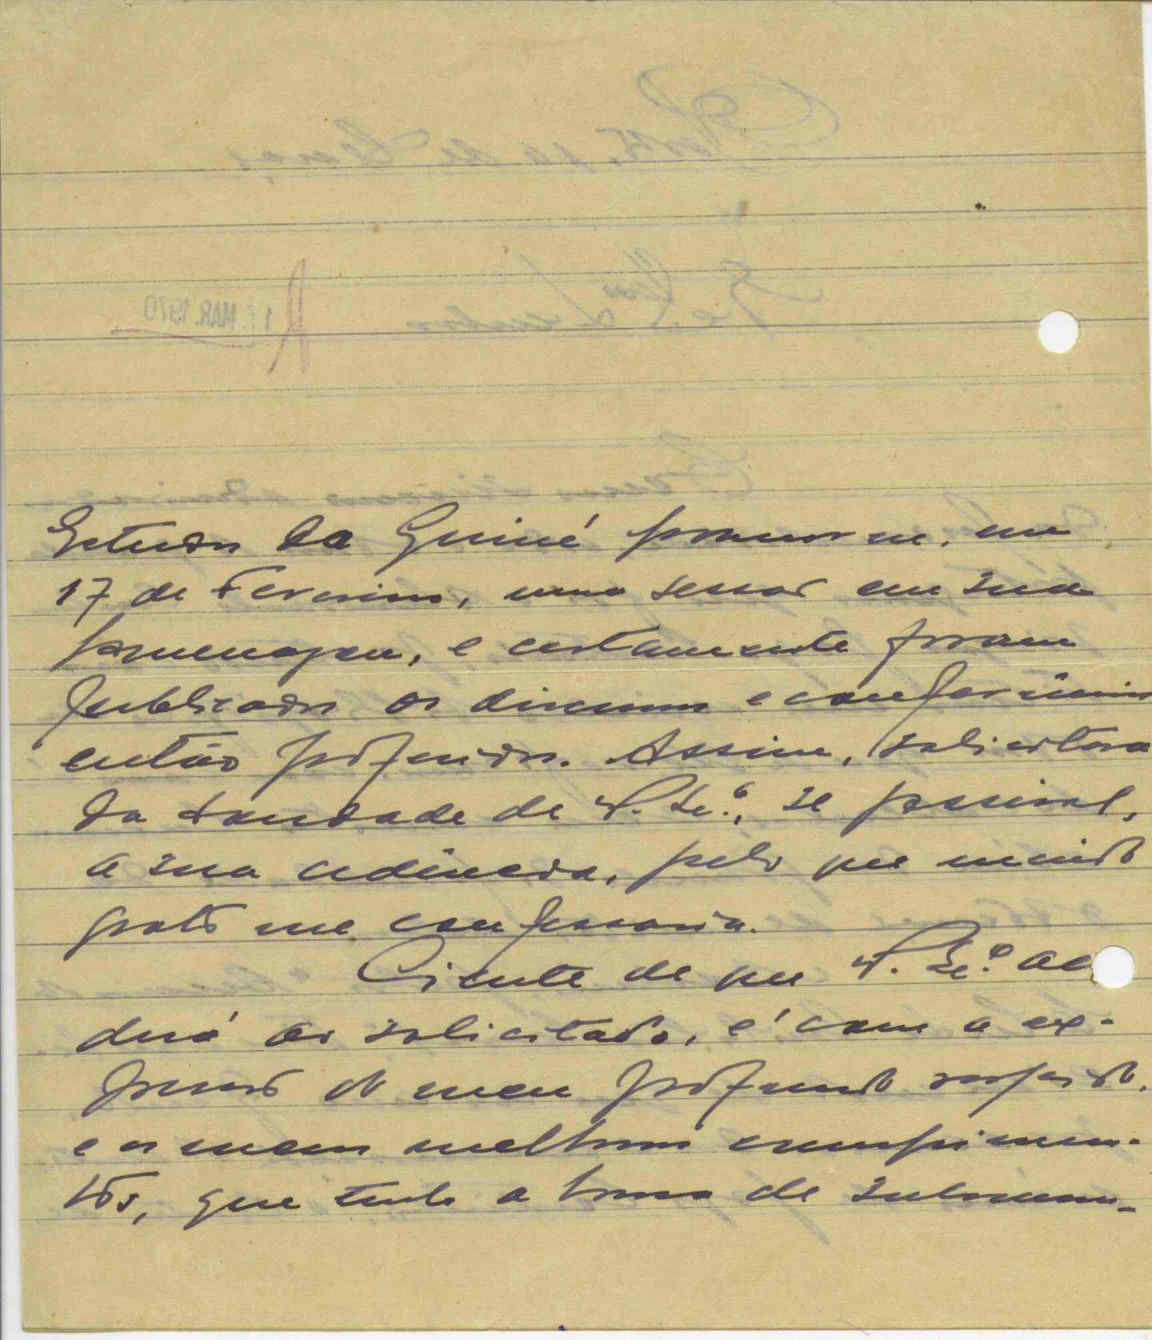 Estudos da Guiné promoveu, em
17 de Fevereiro, uma sessão em sua
homenagem, e certamente foram
publicados os discursos e conferências
então proferidos. Assim, solicitava
da bondade de V. Ex.ª, se possível,
a sua cedência, pelo que muito
grato me confessaria.
Ciente de que V. Ex.ª ace
derá ao solicitado, é com a ex-
pressão do meu profundo respeito,
e os meus melhores cumprimen-
tos, que tenho a honra de subscrever-
17 MAR. 1970